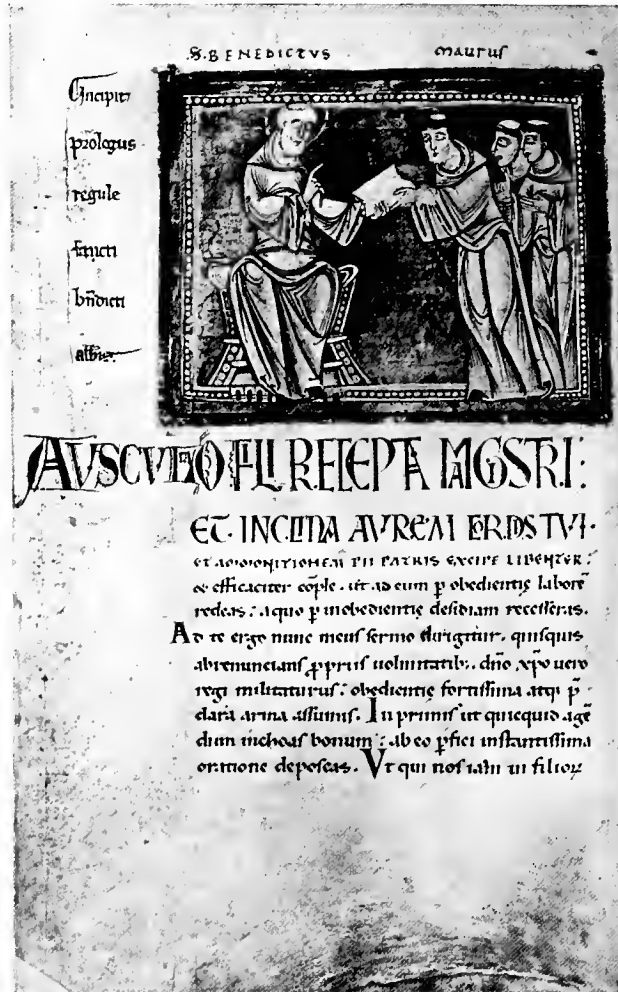 S. BENEDICTVS MAURUS
Incipit
prologus
regule
sancti
bñdicti
AUSCULTA O FILI PRECEPTA MAGISTRI:
ET INCLINA AVREM CORDIS TVI.
ET ADMONITIONEM PII PATRIS EXCIPE LIBENTER:
& efficaciter cõple. ut ad eum p obedientię laborẽ
redeas: a quo p inobedientię desidiam recesseras.
Ad te ergo nunc meus sermo dirigitur. quisquis
abrenuncians ꝓpriis uoluntatib;. dño xp̄o uero
regi militaturus: obedientię fortissima atq; p̄
clara arma assumis. In primis ut quicquid agẽ
dum inchoas bonum: ab eo ꝑfici instantissima
oratione deposcas. Vt qui nos iam in filioꝝ